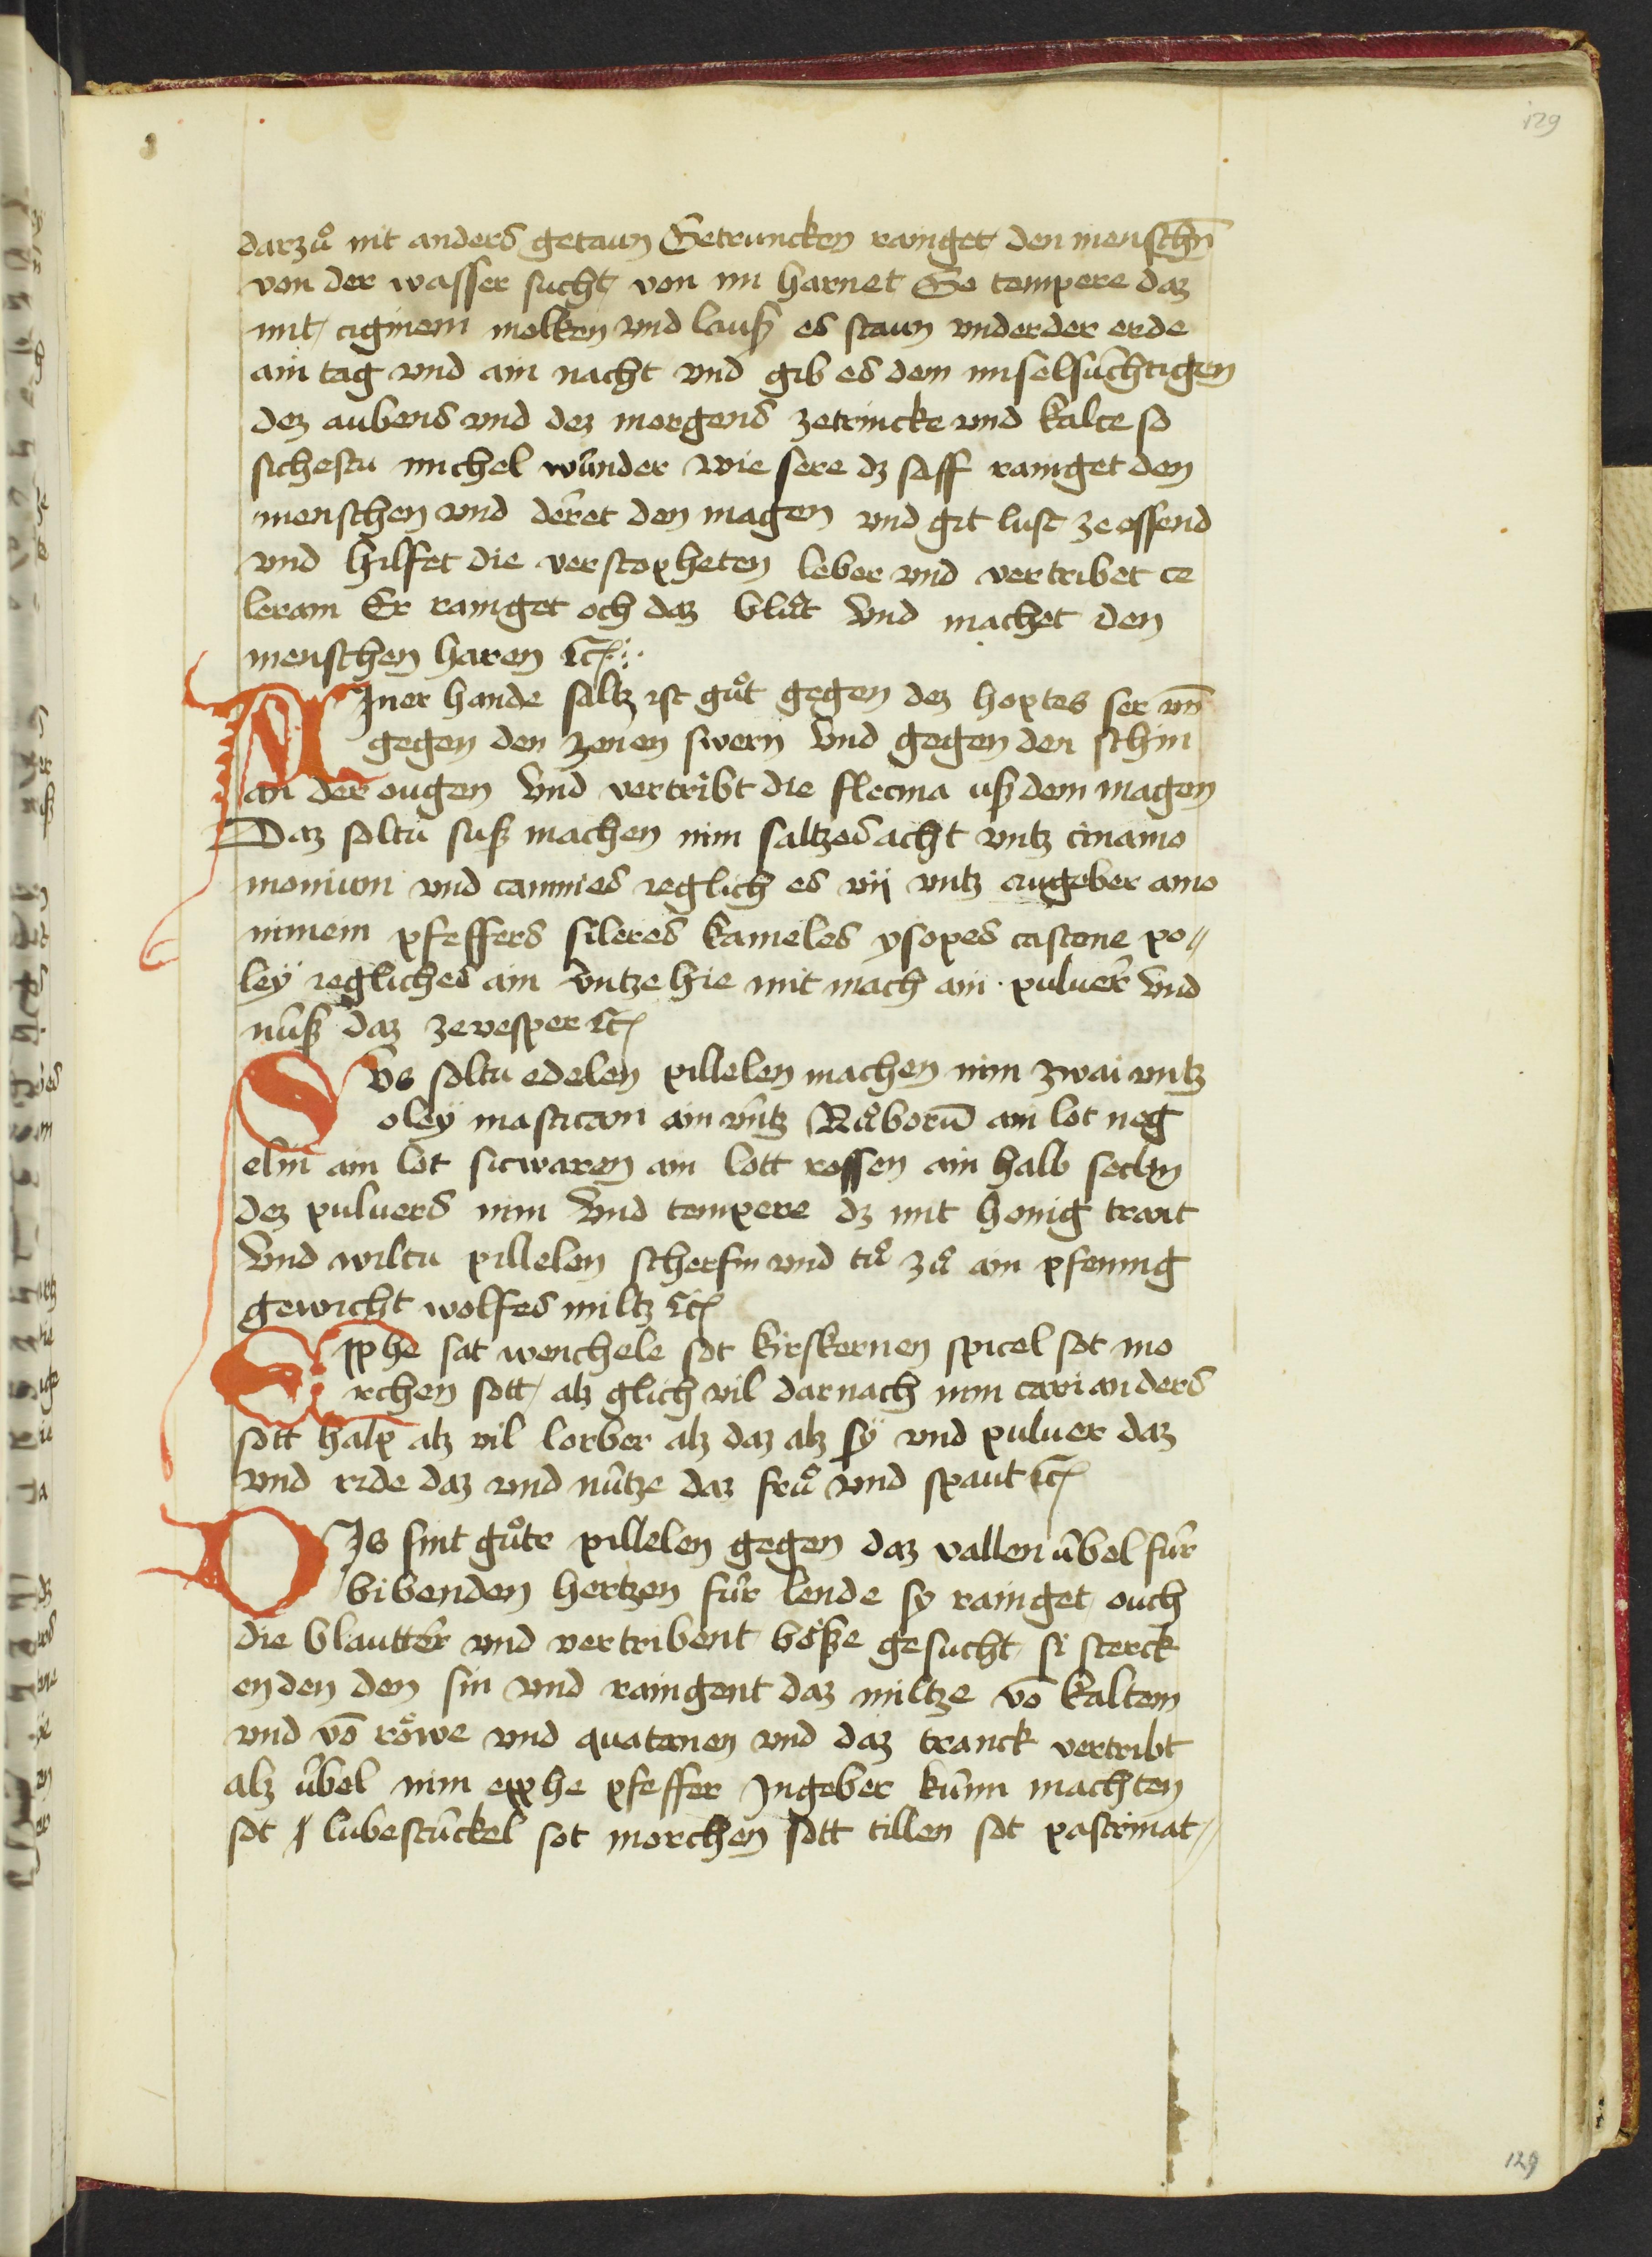 129
darzuͦ nit anders getaun Getruncken rainget den menschn̄
von der wasser sucht von im harnet So tempere daz
mit aiginem molken vnd lauß es staun vnder der erde
ain tag vnd ain nacht vnd gib es dem miselsüchtigen
dez aubens vnd dez morgens zetrincke vnd kalte so
sichestu michel wunder wie sere dz saff rainget den
menschen vnd deret den magen vnd git lust ze essend
vnd hilfet die verstopheten leber vnd vertribet co
leram Er rainget och daz bluͦt Vnd machet den
menschen haren ⁊c̄
Ainer hande saltz ist guͦt gegen dez hoptes ser vn̄
gegen den zenen swern Vnd gegen den schin
an der ougen Vnd vertribt die flecma uß dem magen
Daz soltu suß machen nim saltzes acht vntz cinamo
monium vnd cammes ieglich es vij vntz angeber amo
nimem pfeffers sileres kameles ysopes castone po〃
leÿ iegliches ain vntze hie mit mach ain puluer Vnd
nüß daz ze vesper ⁊c̄
SVs soltu edelen pillelen machen nim zwai vntz
oleÿ masticam ain vntz Raͦborū ain lot neg
elin ain lot sitwaren ain lott rossen ain halb sechin
dez puluers nim Vnd tempere dz mit honig trait
Vnd wiltu pillelen scherfin vnd tuͦ zuͦ ain pfennig
gewicht wolfes miltz ⁊c̄
Epphe sat wenchele sot kirskernen spicel sot mo
rchen sott alz glich vil darnach nim coriander̄s
sott halp alz vil lorber alz daz alz sÿ vnd puluer daz
vnd ride daz vnd nütze daz fruͦ vnd spaut ⁊c̄
DIs sint guͦte pillelen gegen daz vallen übel für
bibenden hertzen für lende sy rainget ouch
die blautter vnd vertribent böße gesucht si sterck
enden den sin vnd raingent daz miltze vō kaltem
vnd vō röwe vnd quatanen vnd daz tranck vertribt
alz übel nim epphe pfeffer Jngeber kümi machten
sot lubestückel sot morchen sott tillen sot pastrinat〃
129